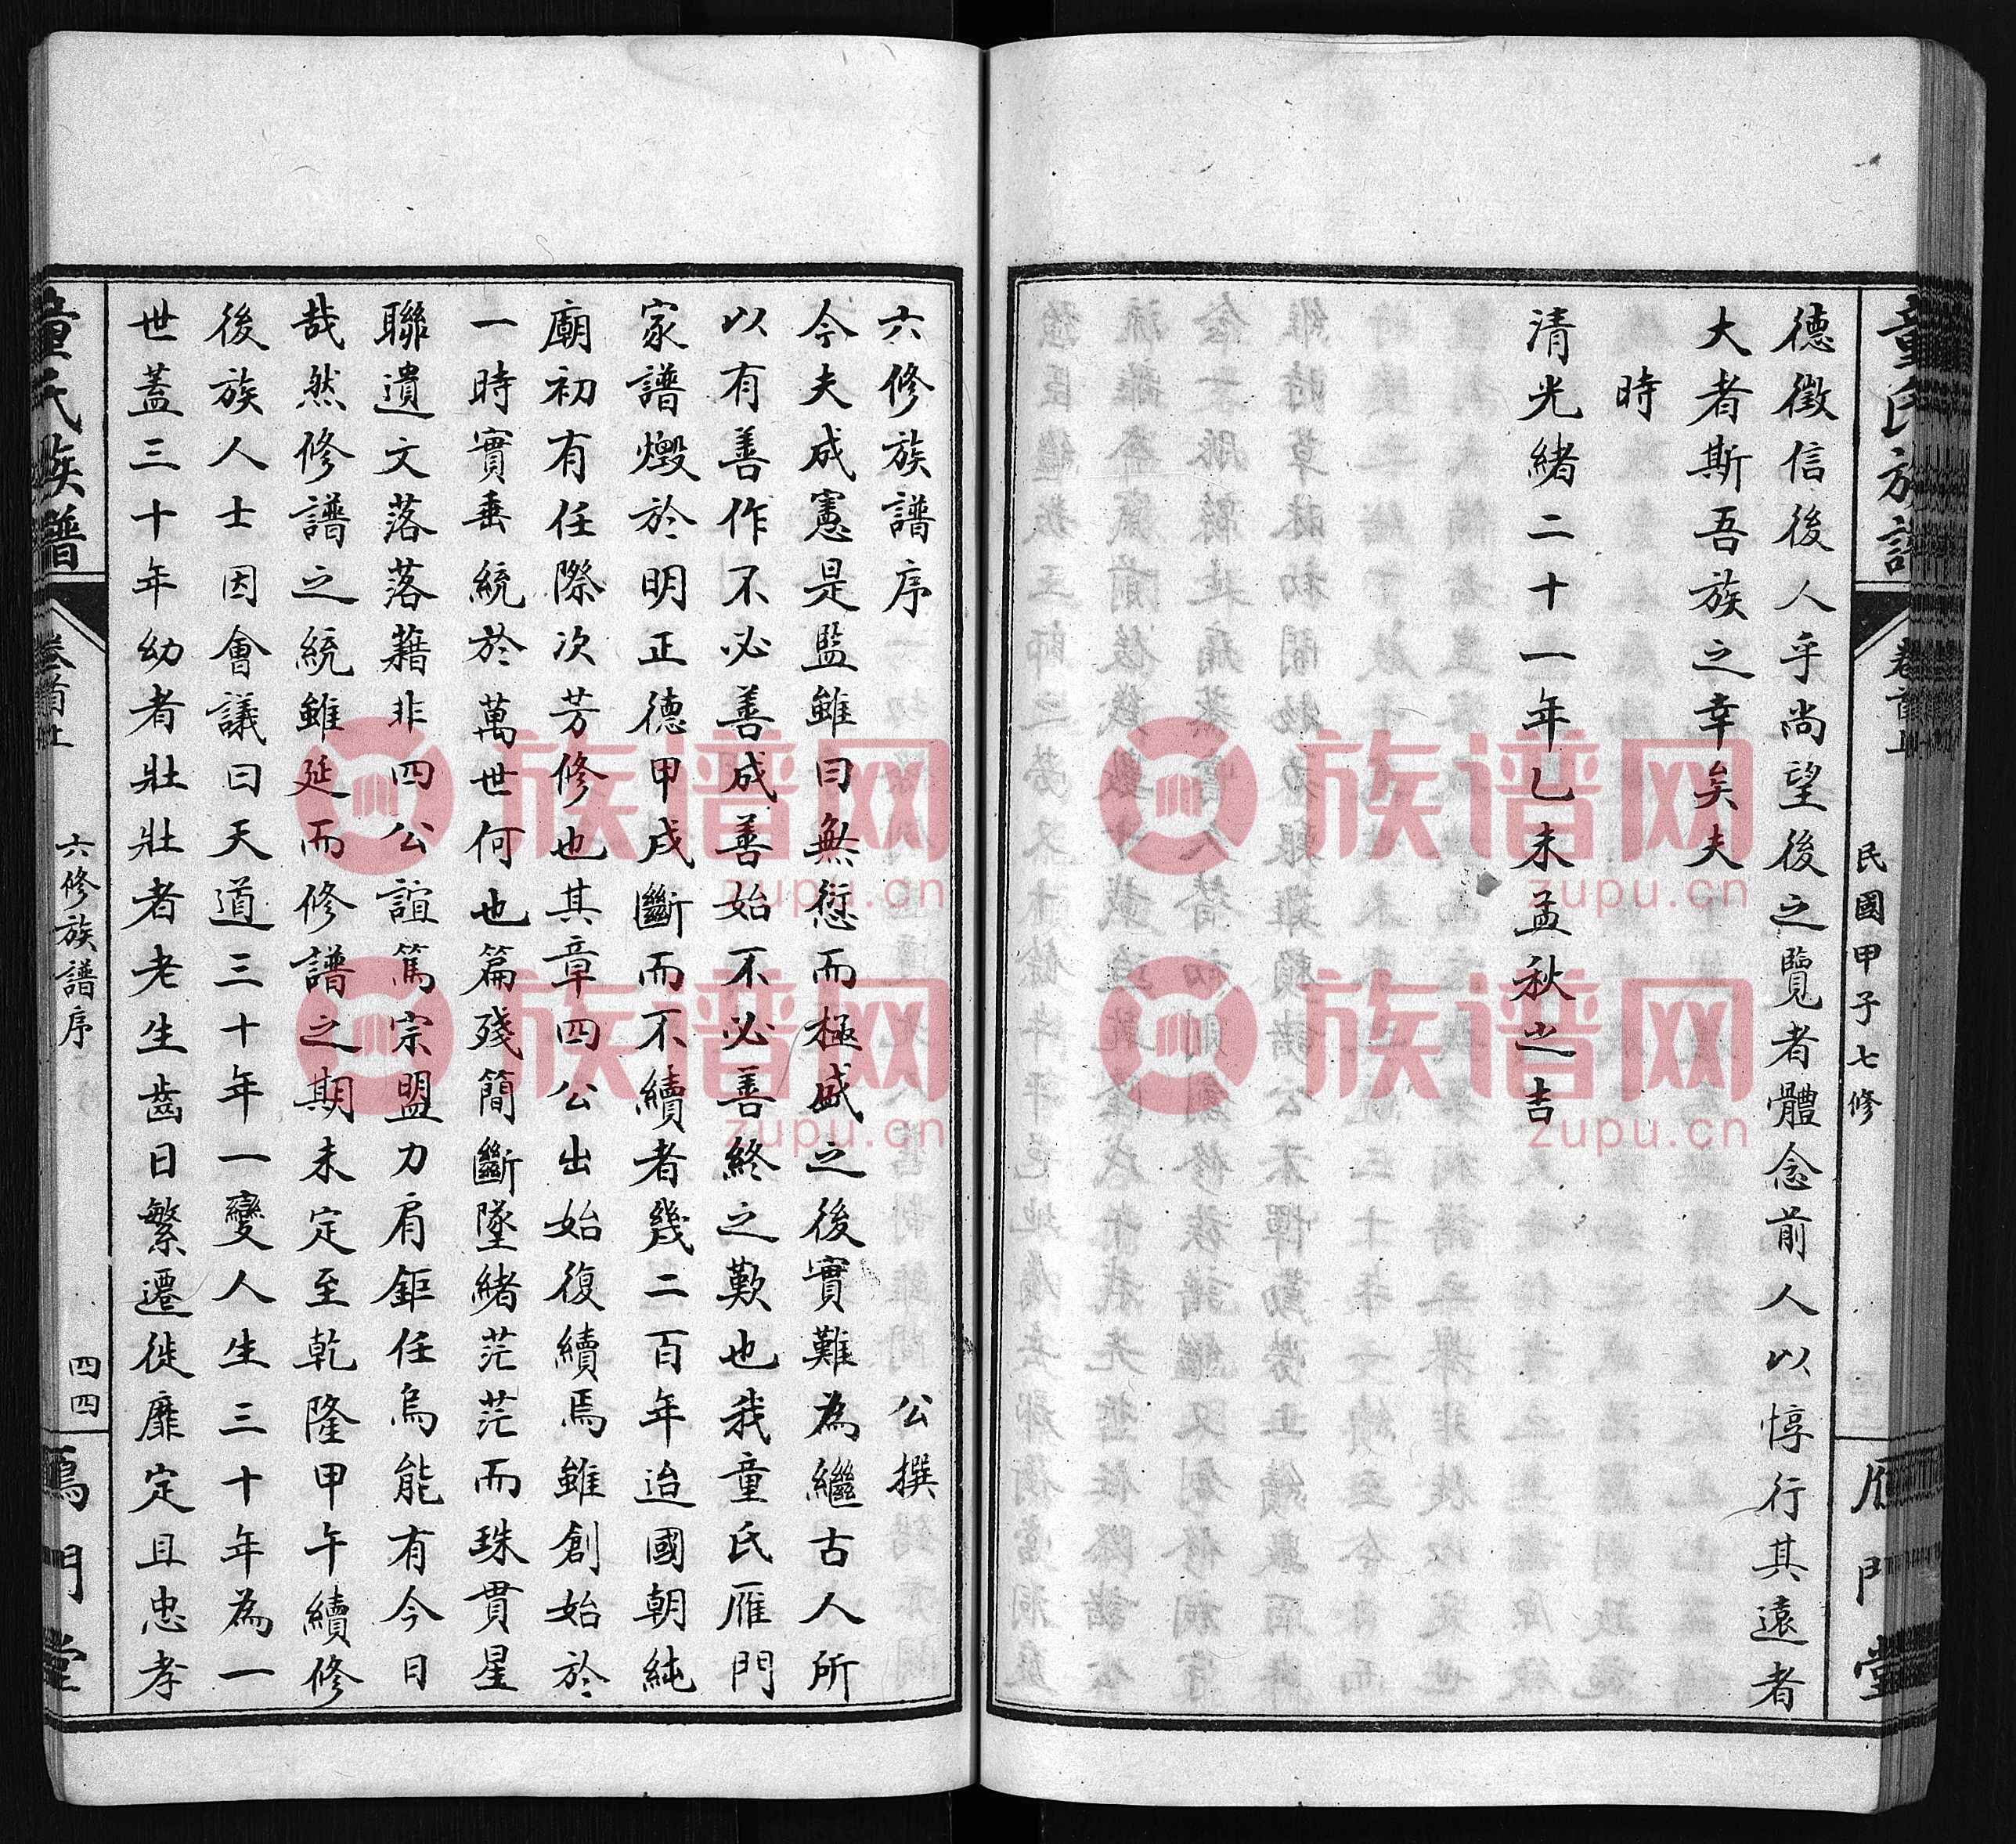 童氏族譜
卷首上
民國甲子七修
雁門堂
德徵信後人乎尚望後之覽者體念前人以惇行其遠者
大者斯吾族之幸矣夫
時
清光緒二十一年乙未孟秋之吉
六修族譜序
公撰
今夫成憲是監雖曰無愆而極盛之後實難為繼古人所
以有善作不必善成善始不必善終之歎也我童氏雁門
家譜燬於明正德甲戌斷而不續者幾二百年迨國朝純
廟初有任際次芳修也其章四公出始復續焉雖創始於
一時實垂統於萬世何也篇殘簡斷墜緒茫茫而珠貫星
聯遺文落落藉非四公誼篤宗盟力肩鉅任烏能有今日
哉然修譜之統雖延而修譜之期未定至乾隆甲午續修
後族人士因會議曰天道三十年一變人生三十年為一
世蓋三十年幼者壯壯者老生齒日繁遷徙靡定且忠孝
童氏族譜
卷首上
六修族譜序
四四
鴈門堂
族谱网
zupu.cn
族谱网
zupu.cn
族谱网
zupu.cn
族谱网
zupu.cn